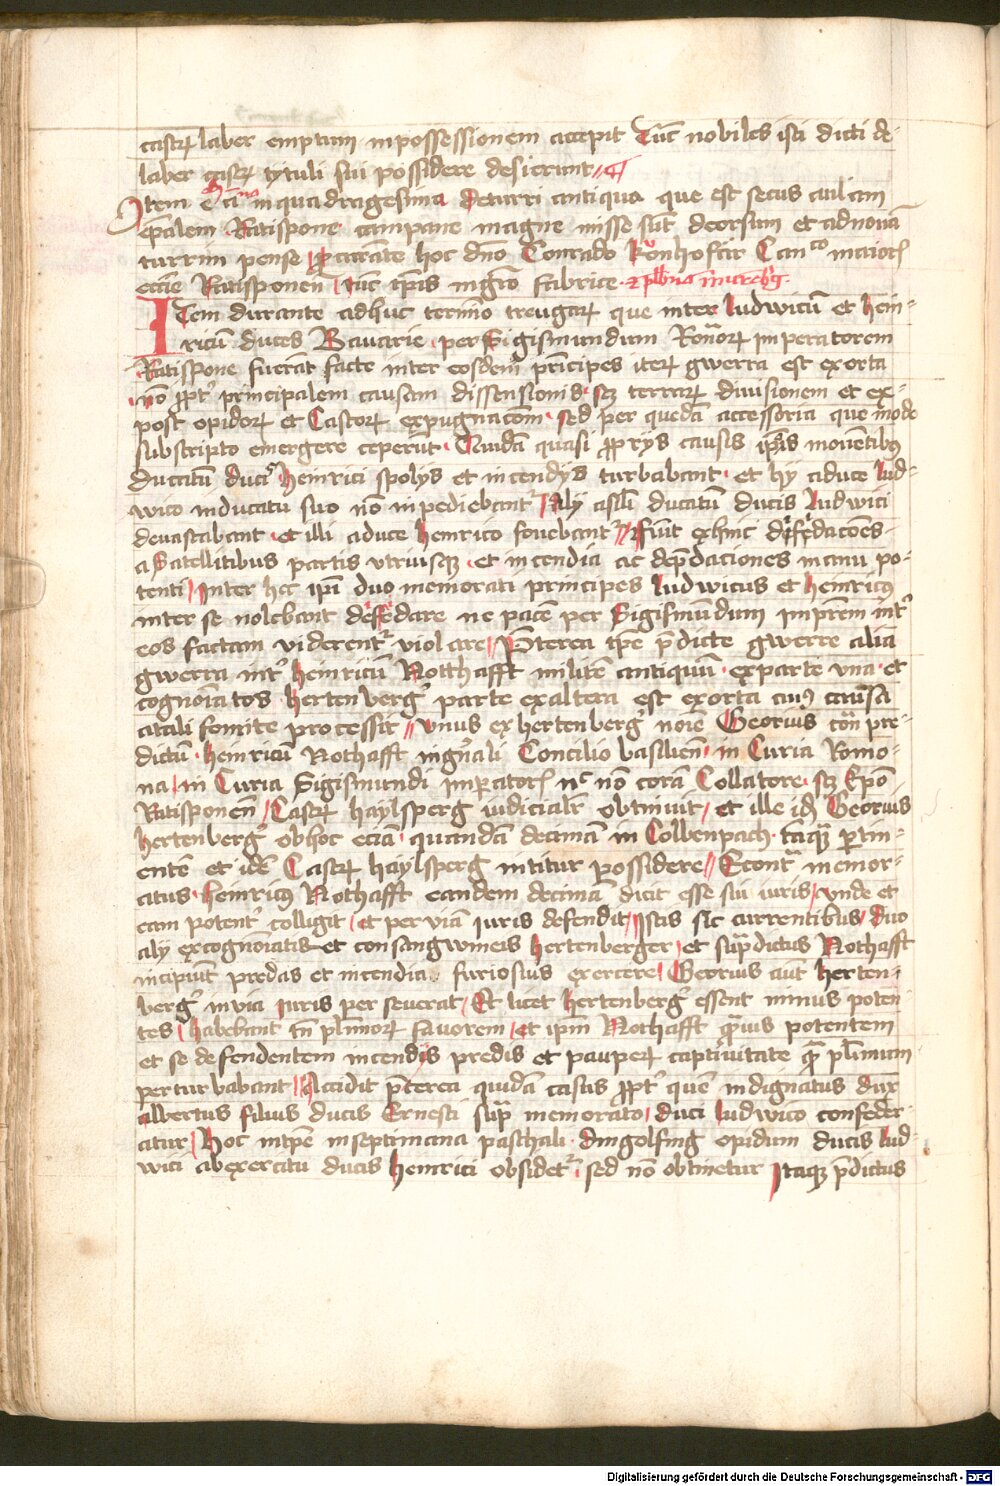 castrꝫ laber emptum in possessionem accepit Tūc nobiles isti dicti de
laber castrꝫ tytuli sui possidere desierunt
Item in quadragesima de turri antiqua que est secus aulam
ep̄alem Ratispone campane magne misse sūt deorsum et ad nouā
turrim pense procurāte hoc dn̄o Conrado Can maioris
ecc̄ie Ratisponen̄ tūc ip̄ius mgr̄o fabrice
Item durante adhuc termino treugarꝫ que inter Ludwicū et Hein-
ricū duces Bauarie per Sigismundum Romāorꝫ imperatorem
Ratispone fuerāt facte inter eosdem principes iterꝫ gwerra est exorta
nō ꝓpt̓ principalem causam dissensionis sꝫ terrarꝫ diuisionem et ex-
post opidorꝫ et Castrorꝫ expugnacōem sed per quedā accessoria que modo
subscripto emergere ceperūt Quidā quasi ꝓprijs causis ip̄os mouentibus
ducatū ducis Heinrici spolijs et incendijs turbabant et hij a duce Lud-
wico in ducatu suo nō impediebant̓ Alij asil̄i ducatū ducis Ludwici
deuastabant et illi a duce Heinrico fouebant̓ fiūt ex hinc diffidacōes
a Satellitibus partis vtriusqꝫ et incendia ac dep̄daciones manu po-
tenti Inter hec ip̄i duo memorati principes Ludwicus et Heinricus
inter se nolebant diffidare ne pacē per Sigismūdum imp̄rem int̓
eos factam viderent̓ violare Preterea tp̄e p̄dicte gwerre alia
gwerra int̓ Heinricū Notthafft militē antiquū ex parte vna et
cognoīatos Hertenberg̓ parte ex altera est exorta cuiꝰ causa
a tali fomite processit vnus ex Hertenberg̓ noīe Georius cōn pre-
dictū Heinricū Nothafft in gn̄ali Concilio basilien̄ in Curia Roma-
na in Curia Sigismundi imperatoris nc̄ nō corā Collatore sꝫ Ep̄o
Ratisponen̄ Castrꝫ Haylsperg iudicialit̓ obtinuit et ille idꝫ Georius
Hertenberg̓ ob hoc eciā quandā decimā in Colbenpach tāqꝫ pertin-
entē et idē Castrꝫ Haylsperg nititur possidere Econt̓ memor-
atus Heinricus Nothafft eandem decimā dicit esse sui iuris vnde et
eam potent̓ colligit et per viā iuris defendit Istis sic currentibus duo
alij ex cognoīatis et consangwineis Hertenberger et sup̄dictus Nothafft
incipiūt predas et incendia furiosius exercere Georius aūt Herten-
berg̓ in via iuris perseuerat Et licet Hertenberg̓ essent minus poten
tes habebant tn̄ pl̄imorꝫ fauorem et ip̄m Nothafft quāuis potentem
et se defendentem incendijs predis et pauperꝫ captiuitate quā pl̄imum
perturbabant Accidit p̄terea quidā casus ꝓpt̓ quē indignatus dux
albertus filius ducis Ernesti sup̄ memorato duci Ludwico confeder-
atur Hoc in tp̄e in septimana paschali dingolfing opidum ducis Lud-
wici ab exercitu ducis Heinrici obsidet̓ sed nō obtinetur Itaqꝫ p̄dictus
Digitalisierung gefördert durch die Deutsche Forschungsgemeinschaft - DFG